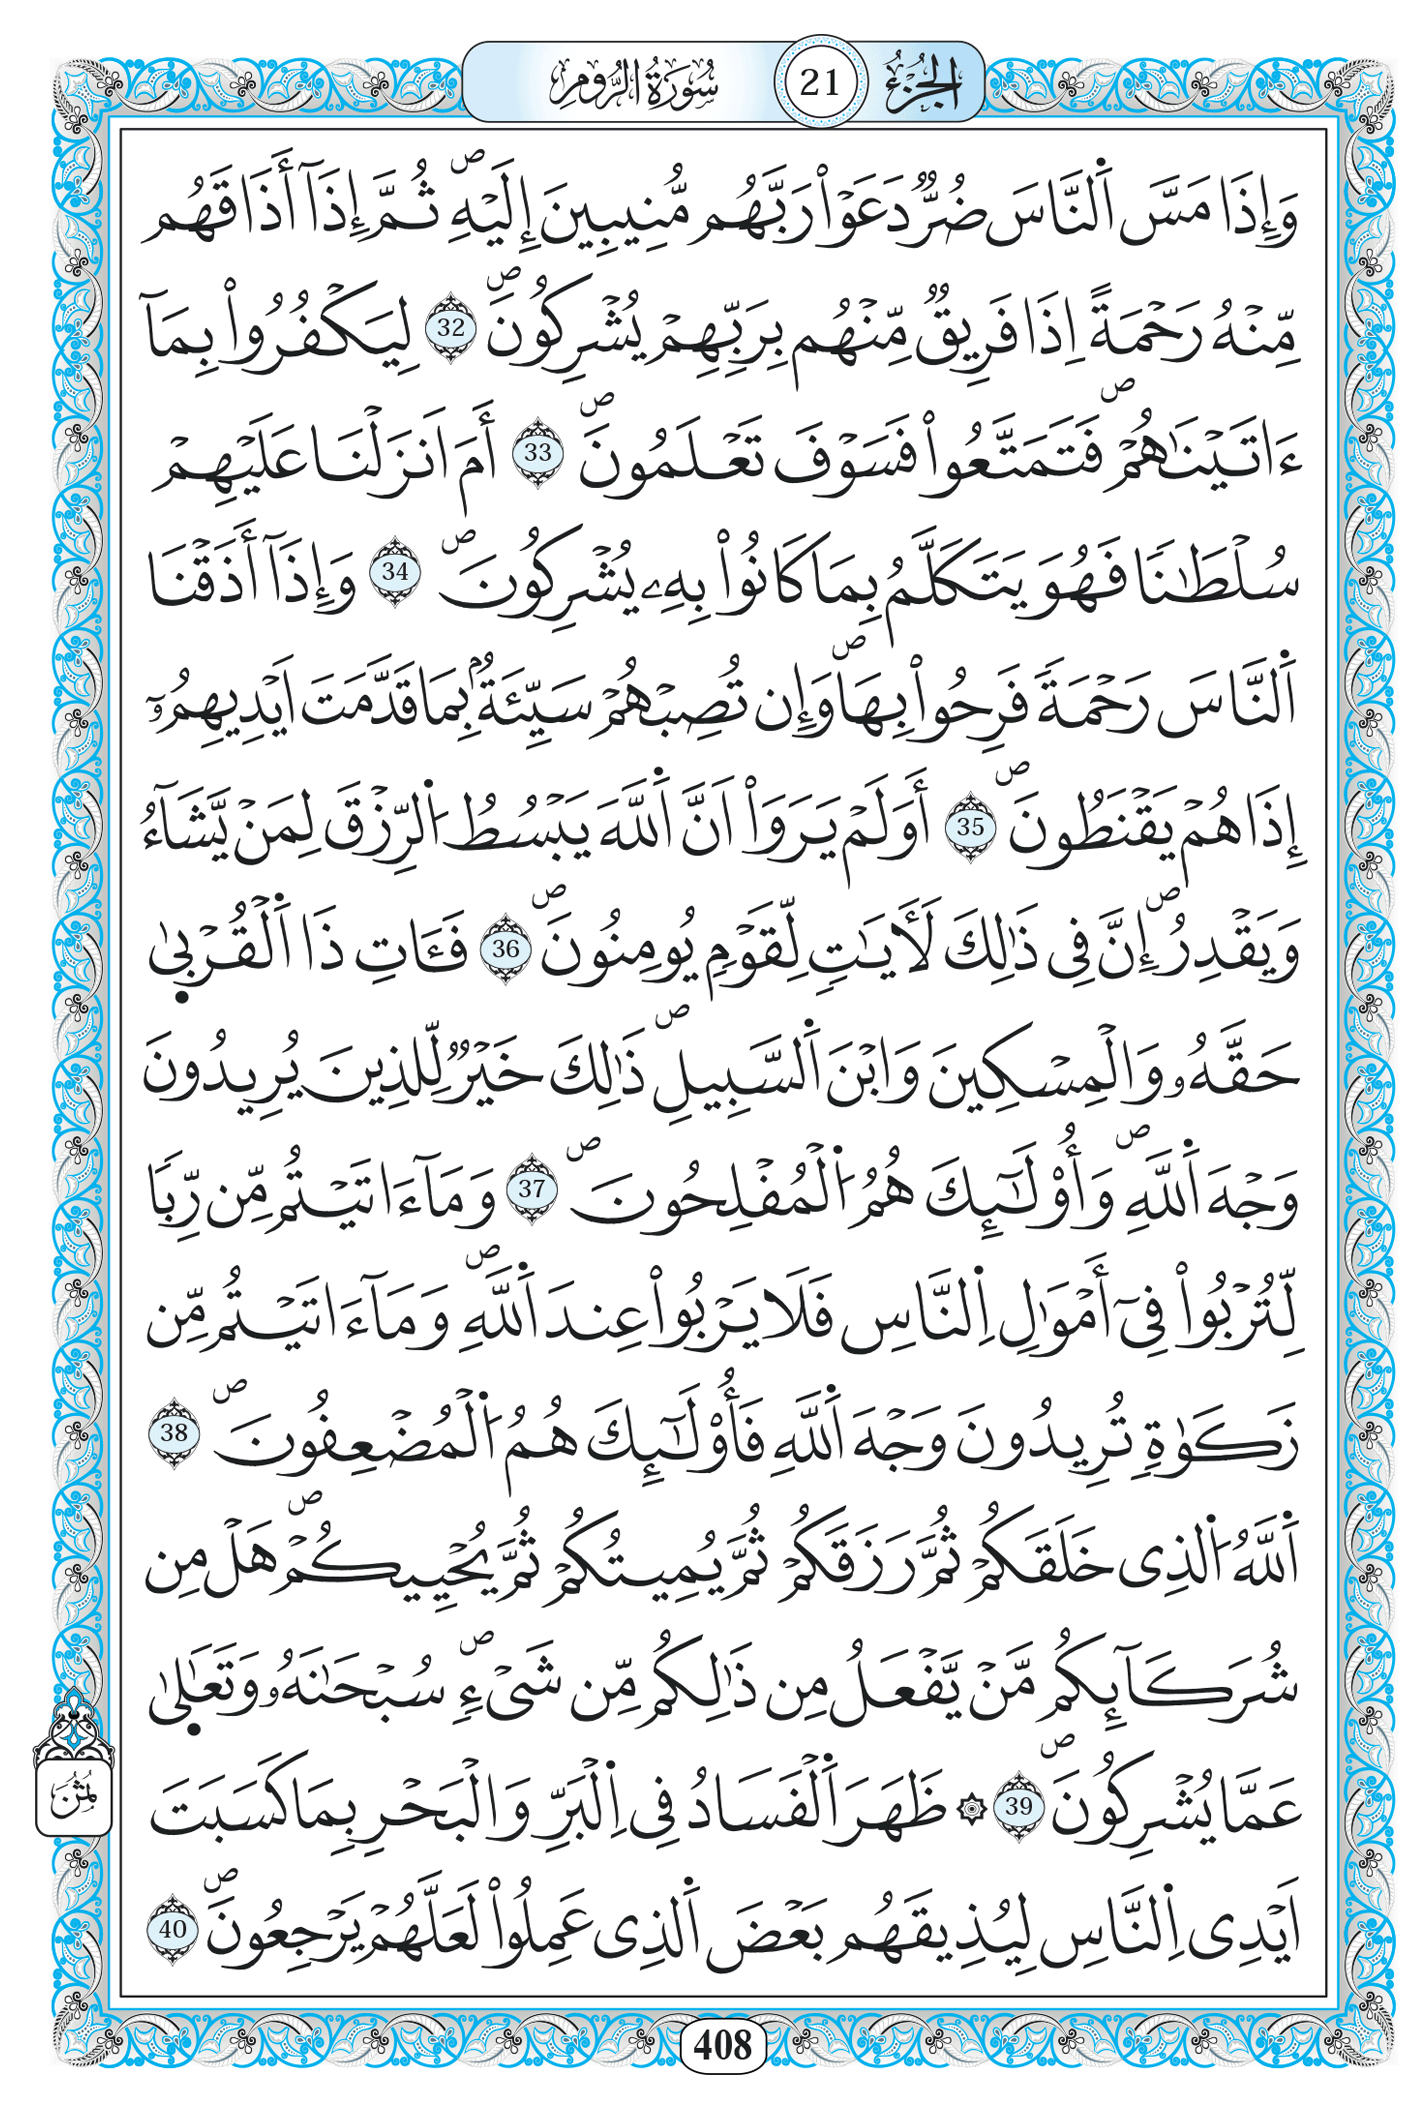 الجزء 21 سورة الروم
وَإِذَا مَسَّ اَ۬لنَّاسَ ضُرّٞ دَعَوْاْ رَبَّهُم مُّنِيبِينَ إِلَيْهِۖ ثُمَّ إِذَآ أَذَاقَهُم
مِّنْهُ رَحْمَةً اِذَا فَرِيقٞ مِّنْهُم بِرَبِّهِمْ يُشْرِكُونَۖ 32 لِيَكْفُرُواْ بِمَآ
ءَاتَيْنَٰهُمْۖ فَتَمَتَّعُواْ فَسَوْفَ تَعْلَمُونَۖ 33 أَمَ اَنزَلْنَا عَلَيْهِمْ
سُلْطَٰنٗا فَهُوَ يَتَكَلَّمُ بِمَا كَانُواْ بِهِۦ يُشْرِكُونَۖ 34 وَإِذَآ أَذَقْنَا
اَ۬لنَّاسَ رَحْمَةٗ فَرِحُواْ بِهَاۖ وَإِن تُصِبْهُمْ سَيِّئَةُۢ بِمَا قَدَّمَتَ اَيْدِيهِمُۥٓ
إِذَا هُمْ يَقْنَطُونَۖ 35 أَوَلَمْ يَرَوَاْ اَنَّ اَ۬للَّهَ يَبْسُطُ اُ۬لرِّزْقَ لِمَنْ يَّشَآءُ
وَيَقْدِرُۖ إِنَّ فِے ذَٰلِكَ لَأٓيَٰتٖ لِّقَوْمٖ يُومِنُونَۖ 36 فَـَٔاتِ ذَا اَ۬لْقُرْب۪يٰ
حَقَّهُۥ وَالْمِسْكِينَ وَابْنَ اَ۬لسَّبِيلِۖ ذَٰلِكَ خَيْرٞ لِّلذِينَ يُرِيدُونَ
وَجْهَ اَ۬للَّهِۖ وَأُوْلَٰٓئِكَ هُمُ اُ۬لْمُفْلِحُونَۖ 37 وَمَآ ءَاتَيْتُم مِّن رِّباٗ
لِّتُرْبُواْ فِےٓ أَمْوَٰلِ اِ۬لنَّاسِ فَلَا يَرْبُواْ عِندَ اَ۬للَّهِۖ وَمَآ ءَاتَيْتُم مِّن
زَكَوٰةٖ تُرِيدُونَ وَجْهَ اَ۬للَّهِ فَأُوْلَٰٓئِكَ هُمُ اُ۬لْمُضْعِفُونَۖ 38
اَ۬للَّهُ اُ۬لذِے خَلَقَكُمْ ثُمَّ رَزَقَكُمْ ثُمَّ يُمِيتُكُمْ ثُمَّ يُحْيِيكُمْۖ هَلْ مِن
شُرَكَآئِكُم مَّنْ يَّفْعَلُ مِن ذَٰلِكُم مِّن شَےْءٖۖ سُبْحَٰنَهُۥ وَتَعَٰل۪يٰ
عَمَّا يُشْرِكُونَۖ 39 ۞ ظَهَرَ اَ۬لْفَسَادُ فِے اِ۬لْبَرِّ وَالْبَحْرِ بِمَا كَسَبَتَ
اَيْدِے اِ۬لنَّاسِ لِيُذِيقَهُم بَعْضَ اَ۬لذِے عَمِلُواْ لَعَلَّهُمْ يَرْجِعُونَۖ 40
ثُمُن
408